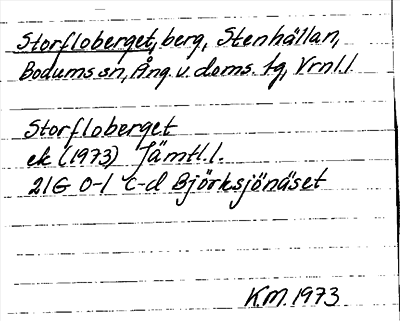 Storfloberget, berg, Stenhällan,
Bodums sn, Ång. v. doms. tg, Vrnl.l
Storfloberget
ek (1973) Jämtl.l.
21G 0-1 c-d Björksjönäset
KM. 1973